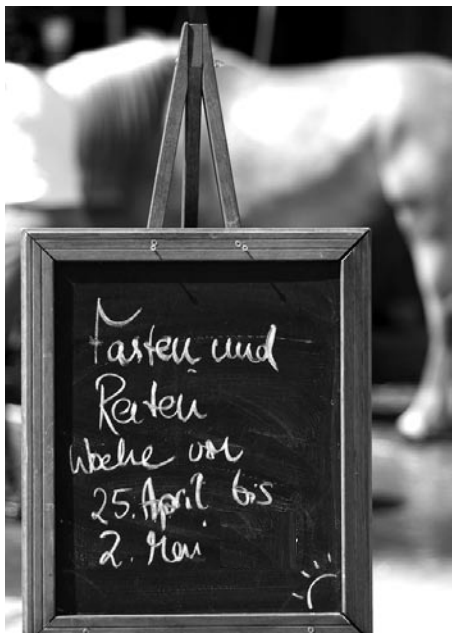 Fasten und
Reiten
Woche von
25. April bis
2. Mai